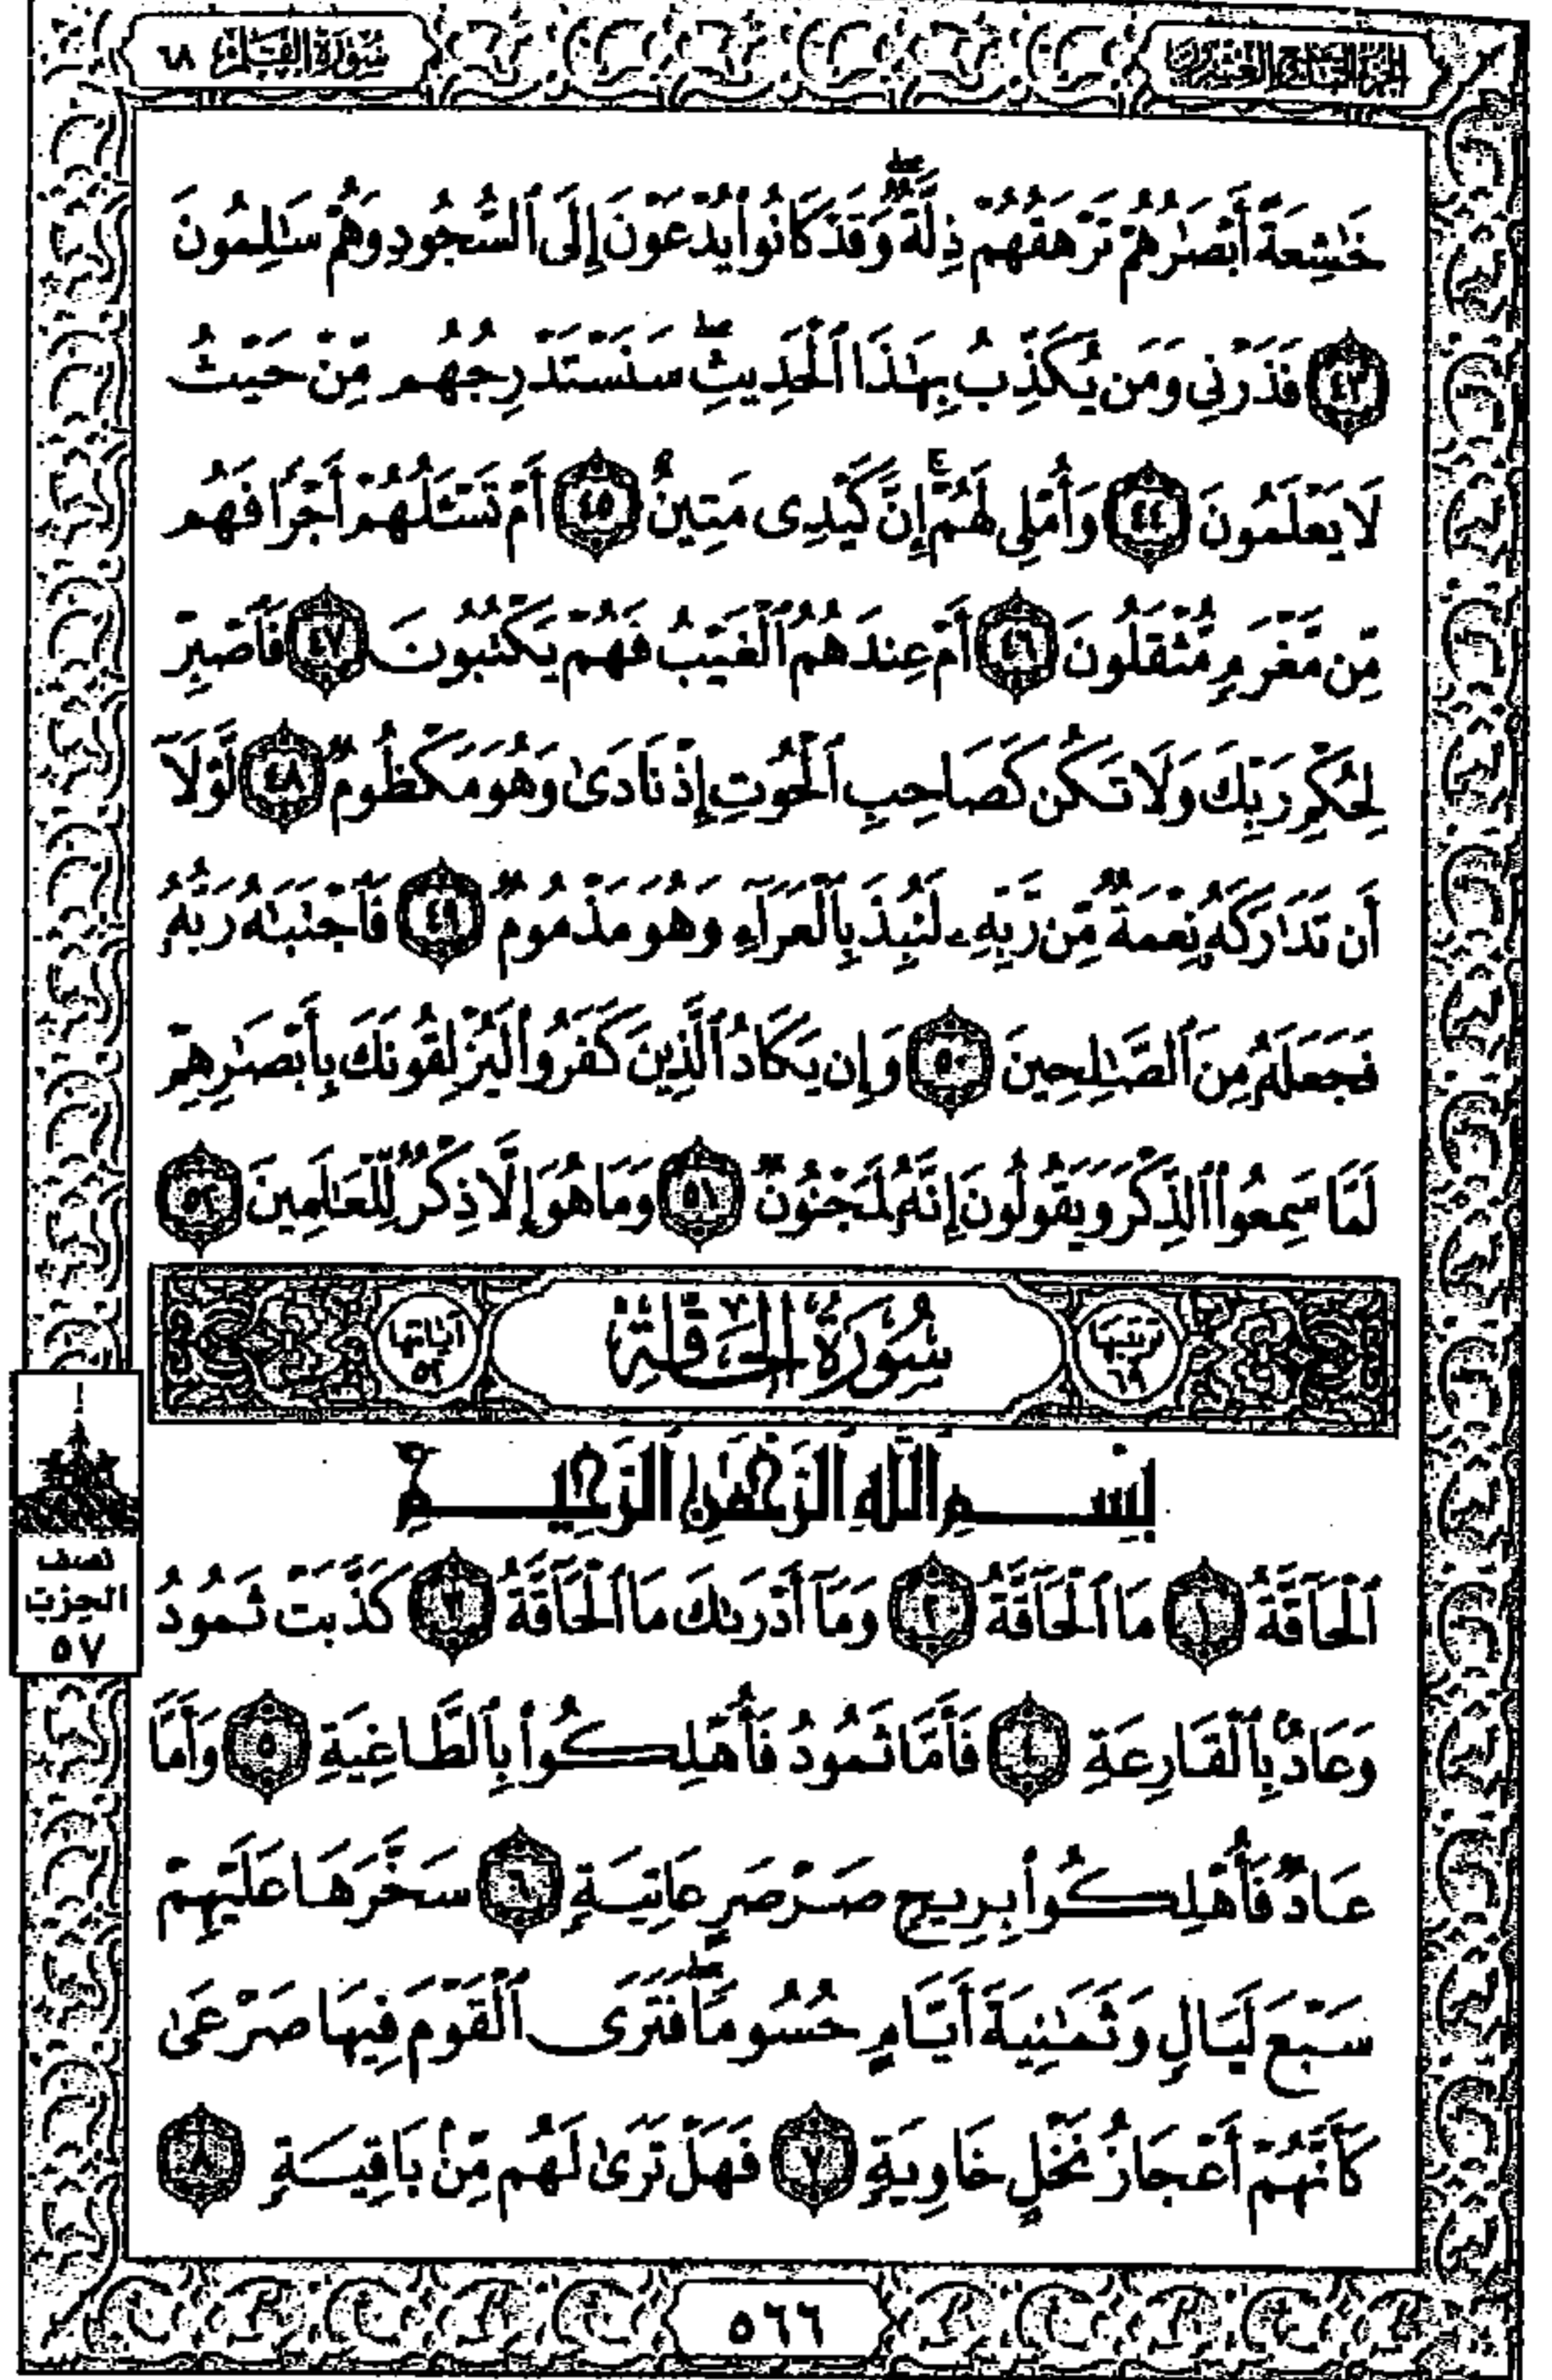 الجزء التاسع والعشرون
سورة القلم ٦٨
خَٰشِعَةً أَبْصَٰرُهُمْ تَرْهَقُهُمْ ذِلَّةٌ ۖ وَقَدْ كَانُوا۟ يُدْعَوْنَ إِلَى ٱلسُّجُودِ وَهُمْ سَٰلِمُونَ
٤٣ فَذَرْنِى وَمَن يُكَذِّبُ بِهَٰذَا ٱلْحَدِيثِ ۖ سَنَسْتَدْرِجُهُم مِّنْ حَيْثُ
لَا يَعْلَمُونَ ٤٤ وَأُمْلِى لَهُمْ ۚ إِنَّ كَيْدِى مَتِينٌ ٤٥ أَمْ تَسْـَٔلُهُمْ أَجْرًا فَهُم
مِّن مَّغْرَمٍ مُّثْقَلُونَ ٤٦ أَمْ عِندَهُمُ ٱلْغَيْبُ فَهُمْ يَكْتُبُونَ ٤٧ فَٱصْبِرْ
لِحُكْمِ رَبِّكَ وَلَا تَكُن كَصَاحِبِ ٱلْحُوتِ إِذْ نَادَىٰ وَهُوَ مَكْظُومٌ ٤٨ لَّوْلَآ
أَن تَدَٰرَكَهُۥ نِعْمَةٌ مِّن رَّبِّهِۦ لَنُبِذَ بِٱلْعَرَآءِ وَهُوَ مَذْمُومٌ ٤٩ فَٱجْتَبَٰهُ رَبُّهُۥ
فَجَعَلَهُۥ مِنَ ٱلصَّٰلِحِينَ ٥٠ وَإِن يَكَادُ ٱلَّذِينَ كَفَرُوا۟ لَيُزْلِقُونَكَ بِأَبْصَٰرِهِمْ
لَمَّا سَمِعُوا۟ ٱلذِّكْرَ وَيَقُولُونَ إِنَّهُۥ لَمَجْنُونٌ ٥١ وَمَا هُوَ إِلَّا ذِكْرٌ لِّلْعَٰلَمِينَ ٥٢
ترتيبها ٦٩ سُورَةُ الحَاقَّةِ آياتها ٥٢
بِسْمِ ٱللَّهِ ٱلرَّحْمَٰنِ ٱلرَّحِيمِ
ٱلْحَآقَّةُ ١ مَا ٱلْحَآقَّةُ ٢ وَمَآ أَدْرَىٰكَ مَا ٱلْحَآقَّةُ ٣ كَذَّبَتْ ثَمُودُ
وَعَادٌۢ بِٱلْقَارِعَةِ ٤ فَأَمَّا ثَمُودُ فَأُهْلِكُوا۟ بِٱلطَّاغِيَةِ ٥ وَأَمَّا
عَادٌ فَأُهْلِكُوا۟ بِرِيحٍ صَرْصَرٍ عَاتِيَةٍ ٦ سَخَّرَهَا عَلَيْهِمْ
سَبْعَ لَيَالٍ وَثَمَٰنِيَةَ أَيَّامٍ حُسُومًا ۖ فَتَرَى ٱلْقَوْمَ فِيهَا صَرْعَىٰ
كَأَنَّهُمْ أَعْجَازُ نَخْلٍ خَاوِيَةٍ ٧ فَهَلْ تَرَىٰ لَهُم مِّنۢ بَاقِيَةٍ ٨
نصف
الحزب
٥٧
٥٦٦